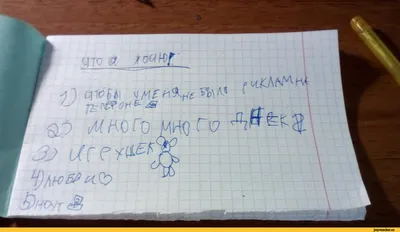 ЧТО Я ХОЧЮ!
1) ЧТОБЫ У МЕНЯ НЕ БЫЛО РИКЛАМ НА
ТЕЛЕФОНЕ
2) МНОГО МНОГО ДНЕК
3) ИГРУШЕК
4) ЛЮБВИ
5) НОУТ
joyreactor.cc